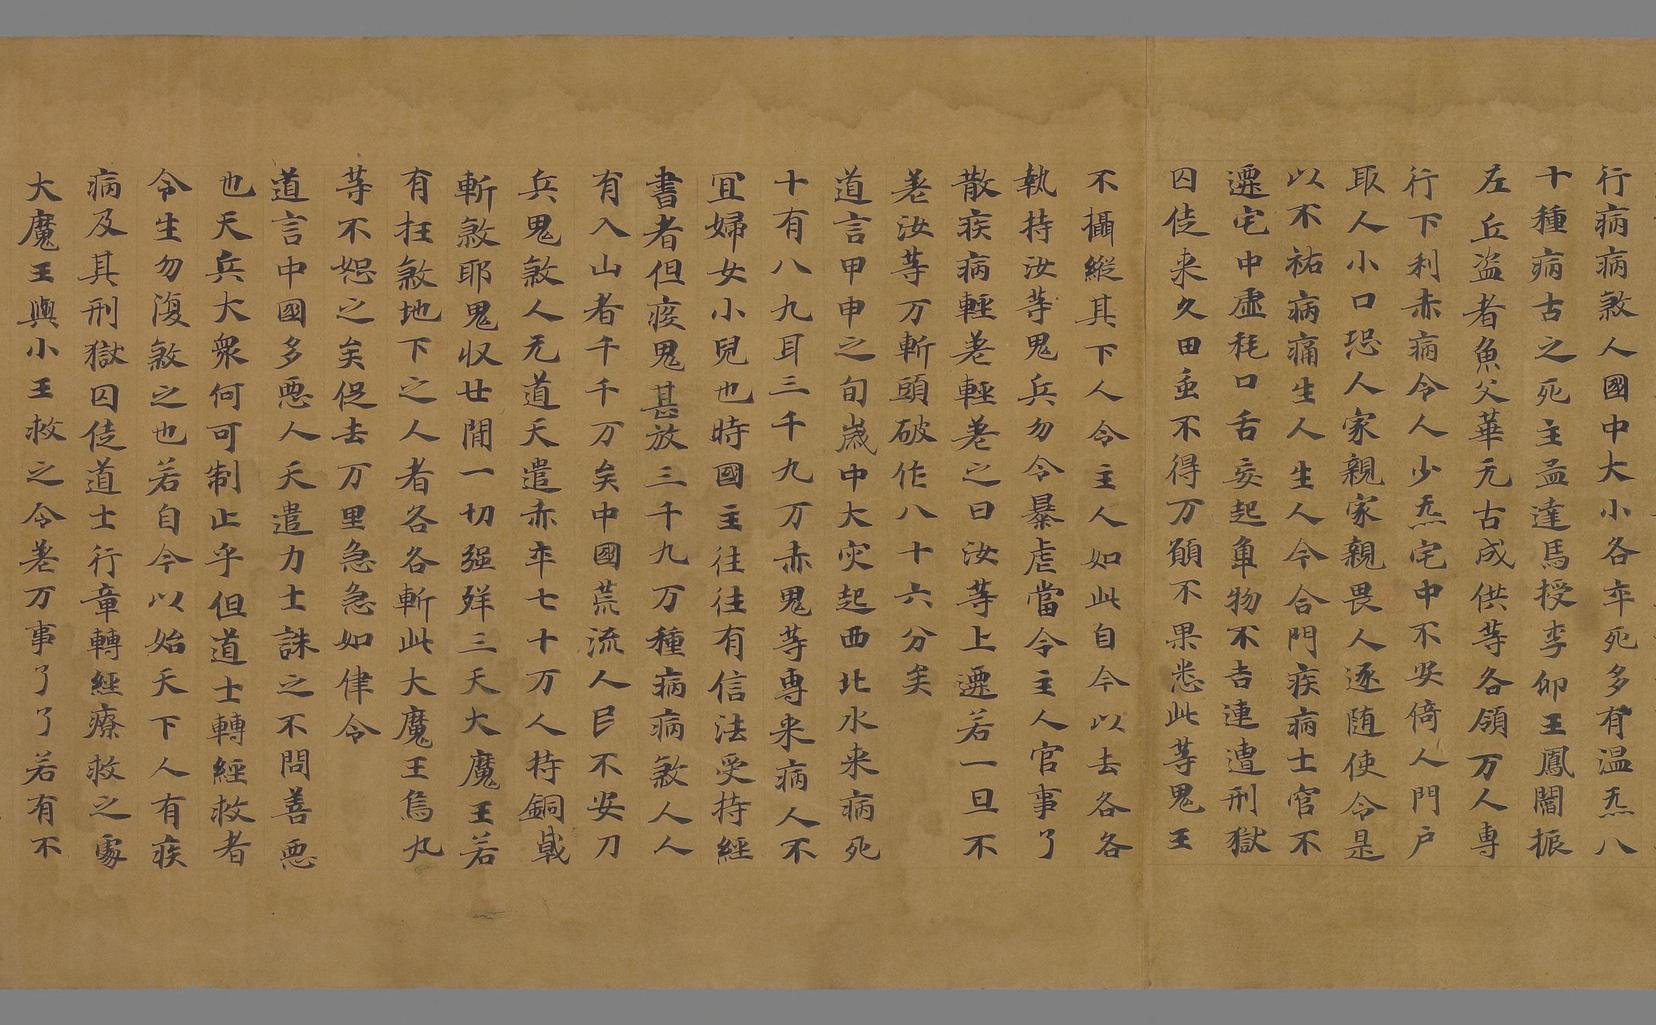 行病病煞人國中大小各卒死多有温炁八
十種病古之死主孟達馬授李仰王鳳闇振
左丘盗者魚父華元古成供等各領万人專
行下利赤病令人少炁宅中不安倚人門户
取人小口恐人家親家親畏人逐随使令是
以不祐病痛生人生人令合門疾病士官不
遷宅中虚耗口舌妄起軰物不吉連遭刑獄
囚徒来久田蚕不得万願不果悉此等鬼王
不攝縱其下人令主人如此自今以去各各
執持汝等鬼兵勿令暴虐當令主人官事了
散疾病輕差輕差之日汝等上遷若一旦不
差汝等万斬頭破作八十六分矣
道言甲申之旬歲中大灾起西北水来病死
十有八九耳三千九万赤鬼等專来病人不
冝婦女小兒也時國主往往有信法受持經
書者但疫鬼甚放三千九万種病病煞人人
有入山者千千万矣中國荒流人民不安刀
兵鬼煞人无道天遣赤卒七十万人持銅戟
斬煞耶鬼収廿間一切强殃三天大魔王若
有抂煞地下之人者各各斬此大魔王烏丸
等不恕之矣促去万里急急如律令
道言中國多悪人天遣力士誅之不問善悪
也天兵大衆何可制止乎但道士轉經救者
令生勿復煞之也若自今以始天下人有疾
病及其刑獄囚徒道士行章轉經療救之處
大魔王與小王救之令差万事了了若有不